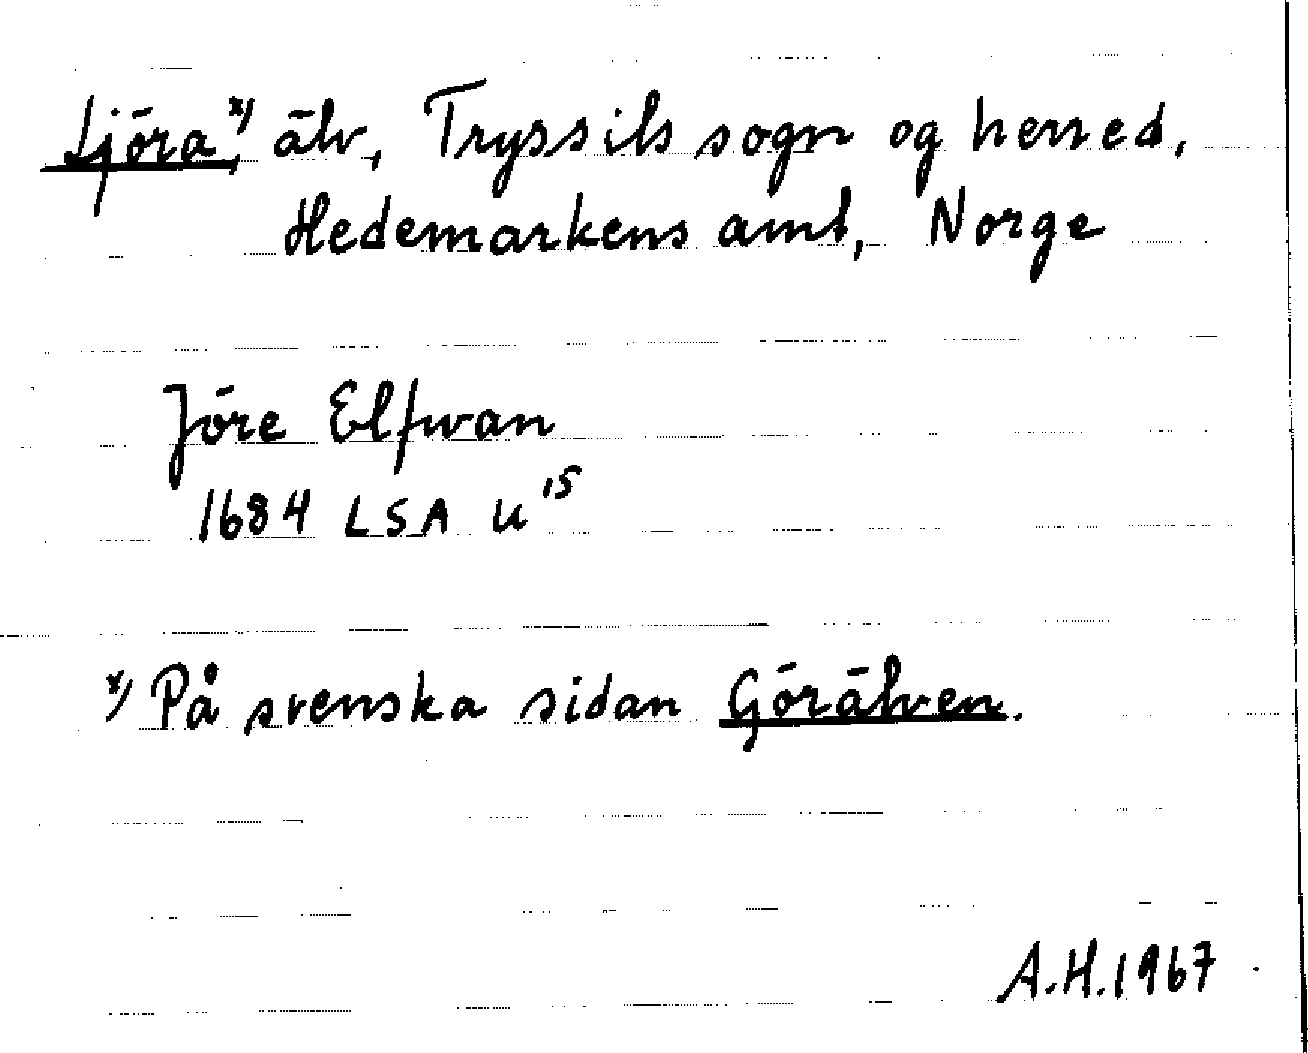 Ljöra x), älv, Tryssils sogn og herred,
Hedemarkens amt, Norge
Jöre Elfwan
1684 LSA U 15
x) På svenska sidan Görälven.
A.H. 1967